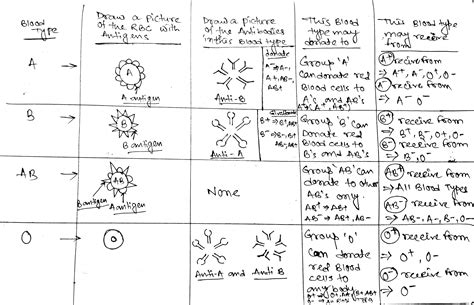 Blood Type
Draw a Picture of the RBC with Antigens
Draw a Picture of the Antibodies in this Blood type
This Blood type may donate to
This Blood type may receive from
A
A antigen
Anti-B
donate
A+, AB+
AB+
Group 'A' Can donate red Blood cells to A's and AB's
A+ recive from
⇒ A+, A-, O+, O-
A- recive from
⇒ A- O-
B
B
B antigen
Anti-A
B+ ⇒ B+, AB+
B- ⇒ B-, B+
Group 'B' Can Donate red Blood cells to B's and AB's
B+ receive from
⇒ B+, B-, O+, O-
B- receive from
⇒ B-, O-
AB
AB
B antigen
A antigen
None
Group 'AB' Can donate to other AB's only.
AB+ ⇒ AB+
AB- ⇒ AB+, AB-
AB+ receive from
⇒ All Blood Types
AB- receive from
⇒ AB-, A-, B-, O-
O
O
Anti-A and Anti B
Group 'O' Can donate red Blood cells to any body
O+ receive from
⇒ O+, O-
O- receive from
⇒ O-